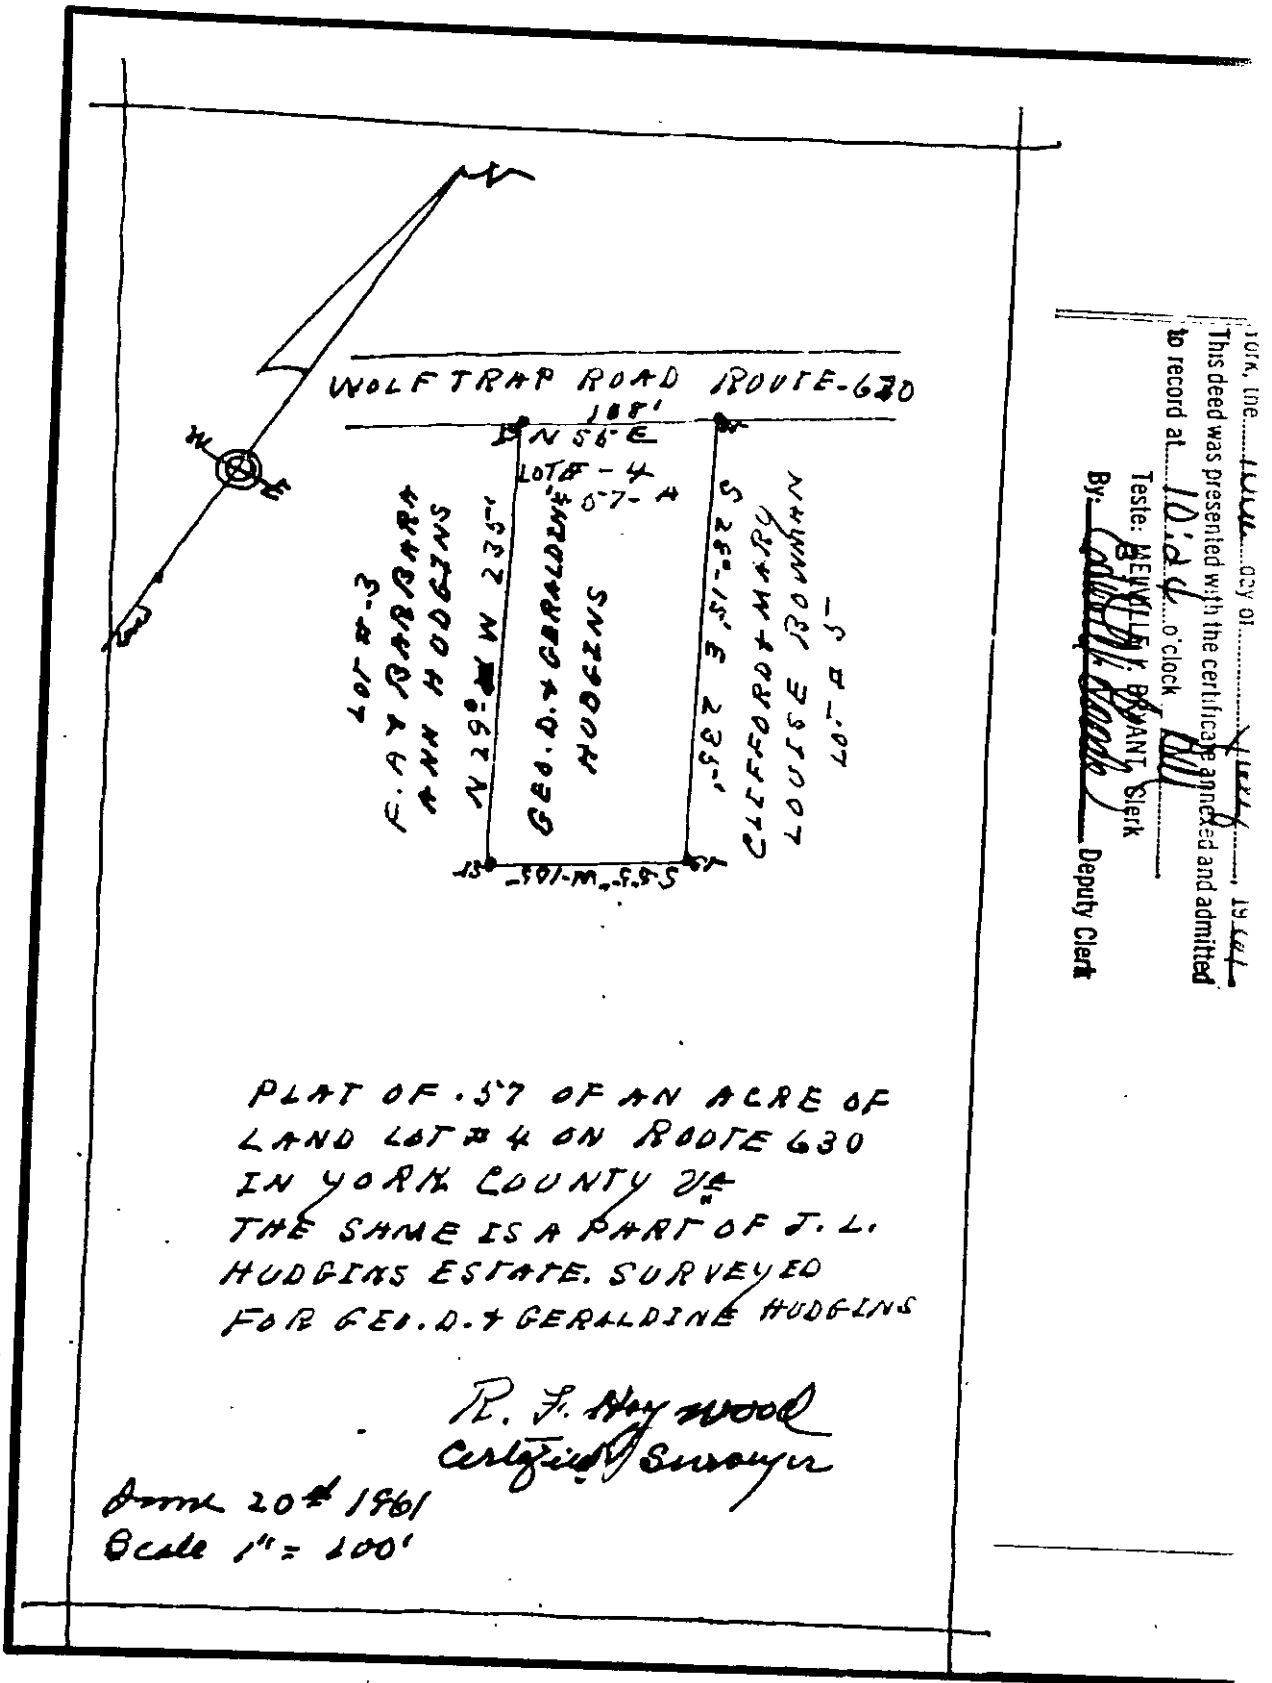 WOLF TRAP ROAD ROUTE-630
108'
N 55 E
LOT # - 4
.57-A
GEO. D. & GERALDINE
HUDGINS
LOT #-3
F. A & BARBARA
ANN HUDGINS
N 29° W 235'
S 28°-15' E 235'
CLIFFORD & MARY
LOUISE BOWMAN
LOT # 5
S-55° W-105'
N
W
E
S
PLAT OF .57 OF AN ACRE OF
LAND LOT # 4 ON ROUTE 630
IN YORK COUNTY Va
THE SAME IS A PART OF J. L.
HUDGINS ESTATE. SURVEYED
FOR GEO. D. & GERALDINE HUDGINS
R. F. Haywood
Certified Surveyor
June 20th 1961
Scale 1" = 100'
York, the day of , 19
This deed was presented with the certificate annexed and admitted
to record at o'clock
Teste: BRYANT, Clerk
By: Deputy Clerk